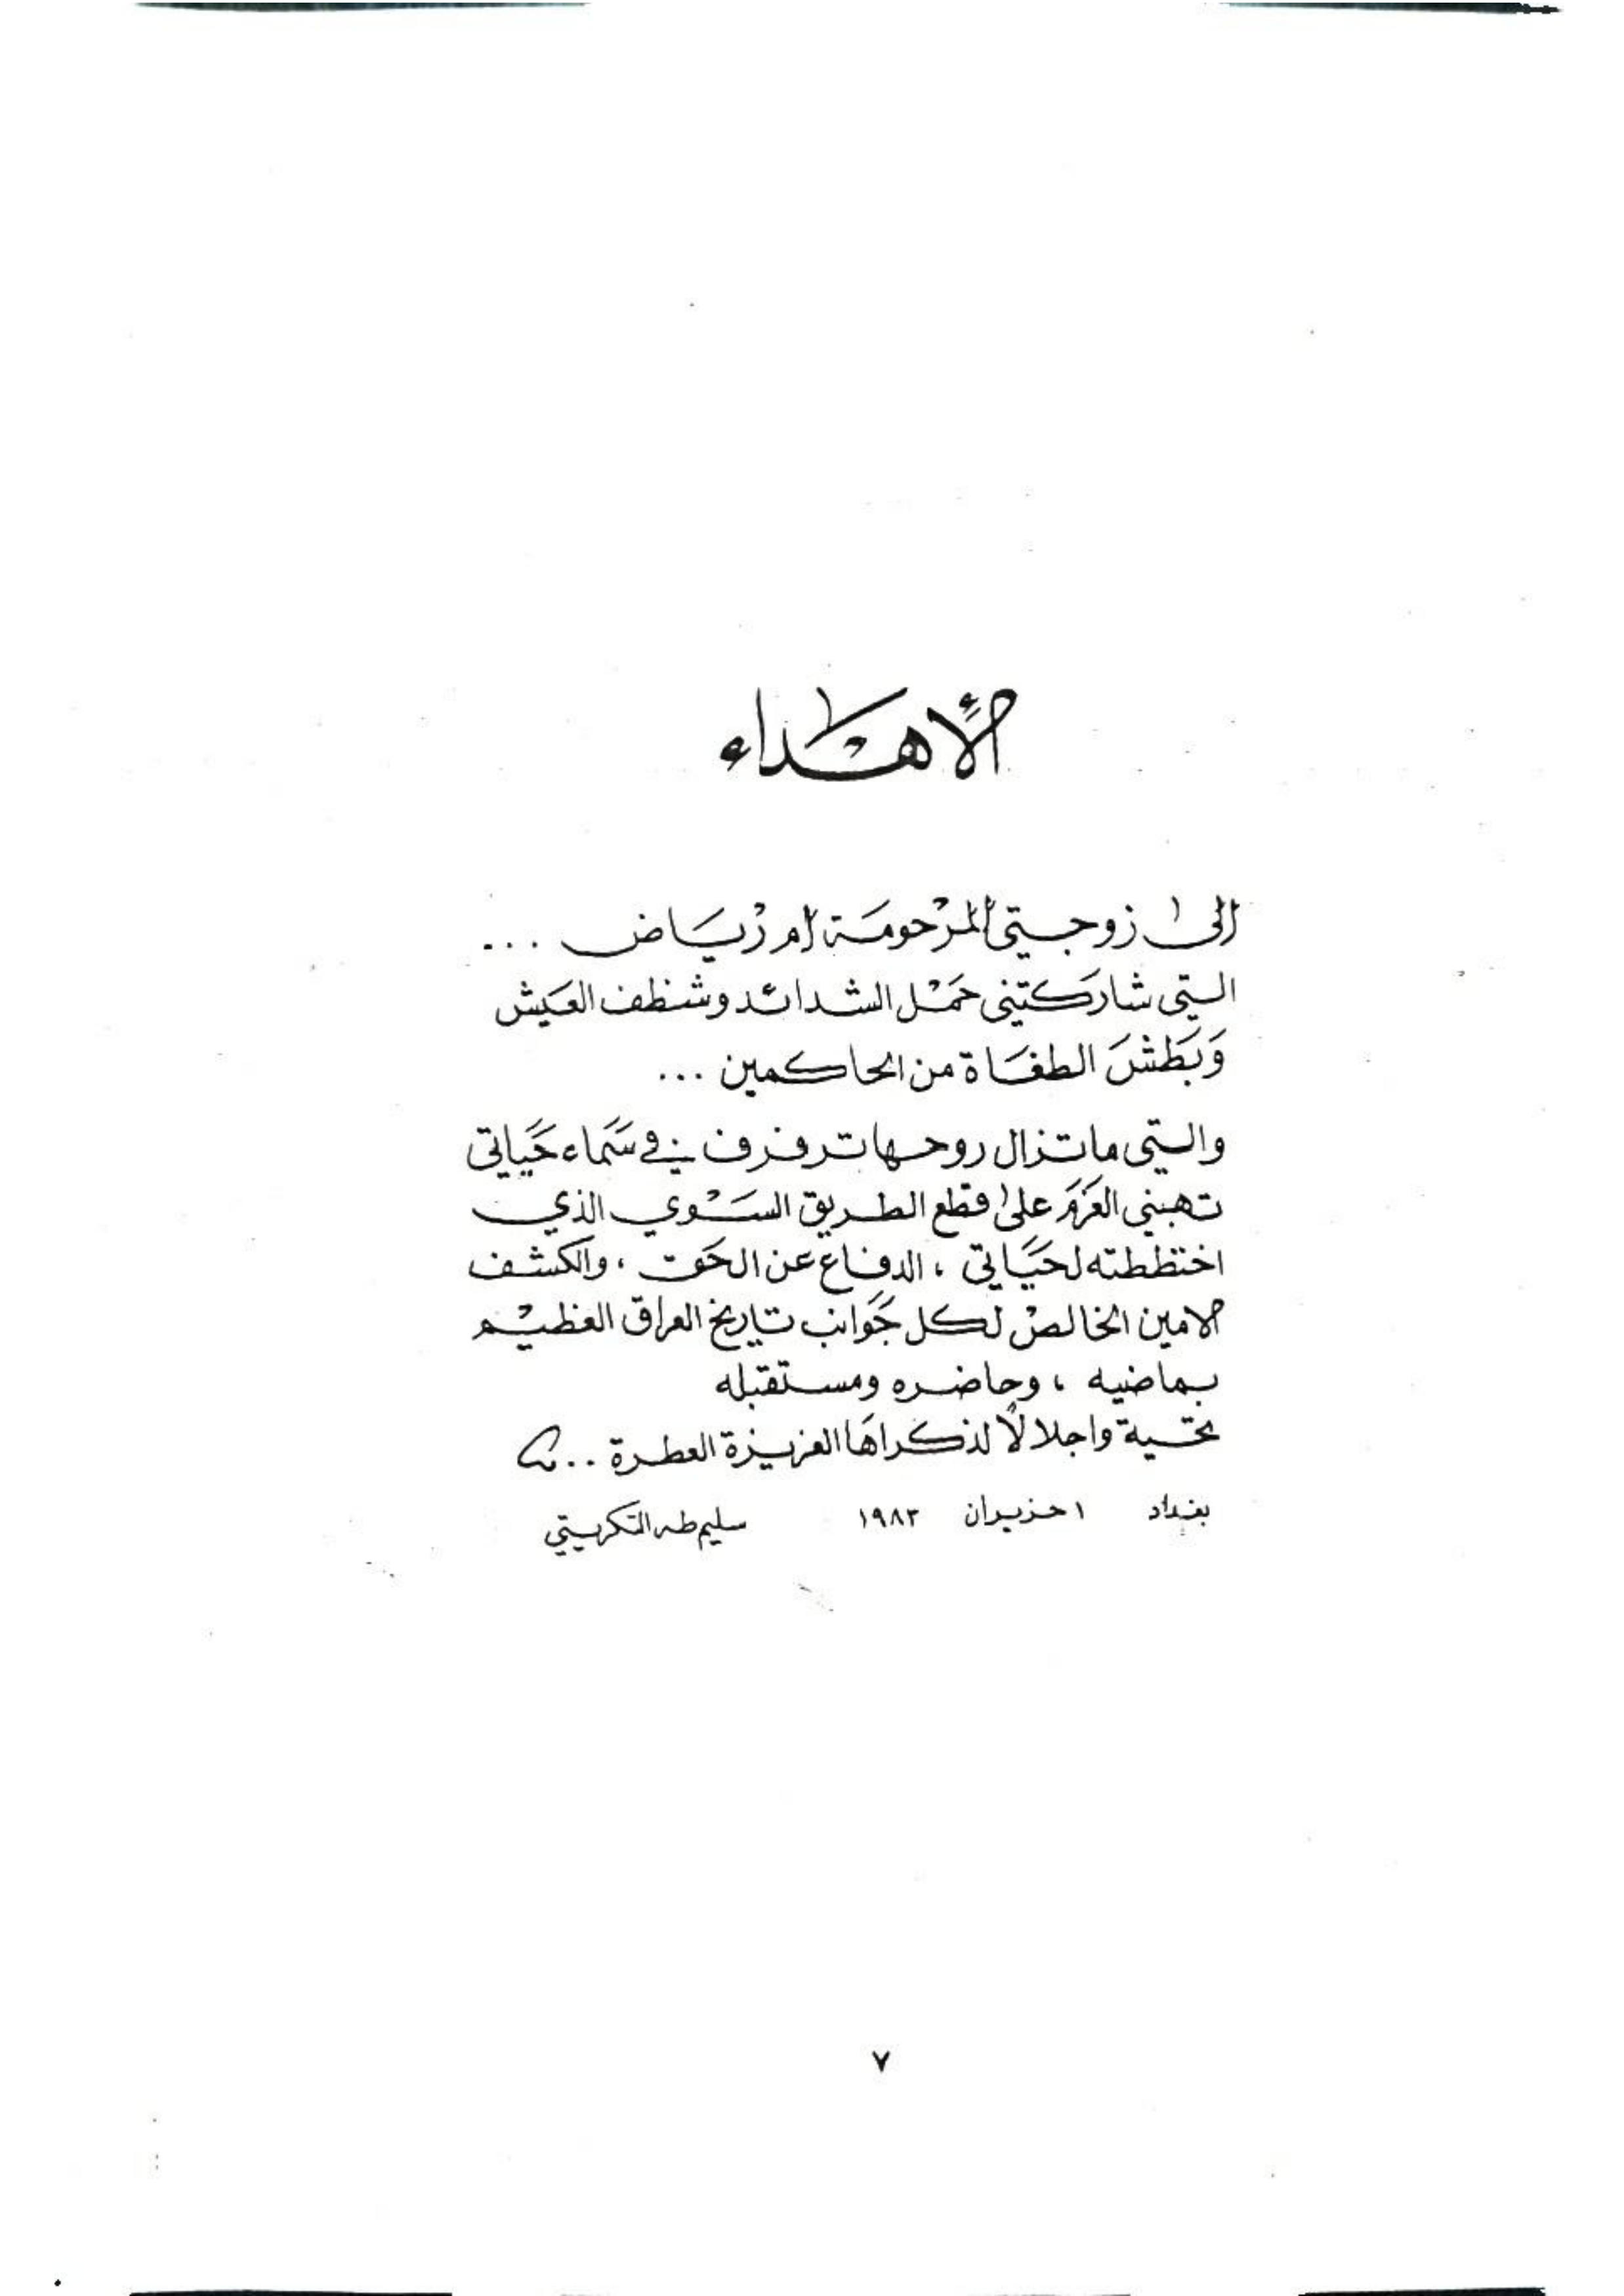 الأهداء
الى زوجتي المرحومة ام رياض ...
التي شاركتني حَمْل الشدائد وشظف العَيش
وَبَطشَ الطغَاة من الحاكمين ...
والتي ماتزال روحها ترفرف في سَماء حَياتي
تهبني العَزمَ على قطع الطريق السَوي الذي
اختططته لحيَاتي ، الدفاع عن الحَق ، والكشف
الامين الخالص لكل جَوانب تاريخ العراق العظيْم
بماضيه ، وحاضره ومستقبله
تحية واجلالاً لذكراهَا العزيزة العطرة ..
بغداد ١ حزيران ١٩٨٣ سليم طه التكريتي
٧